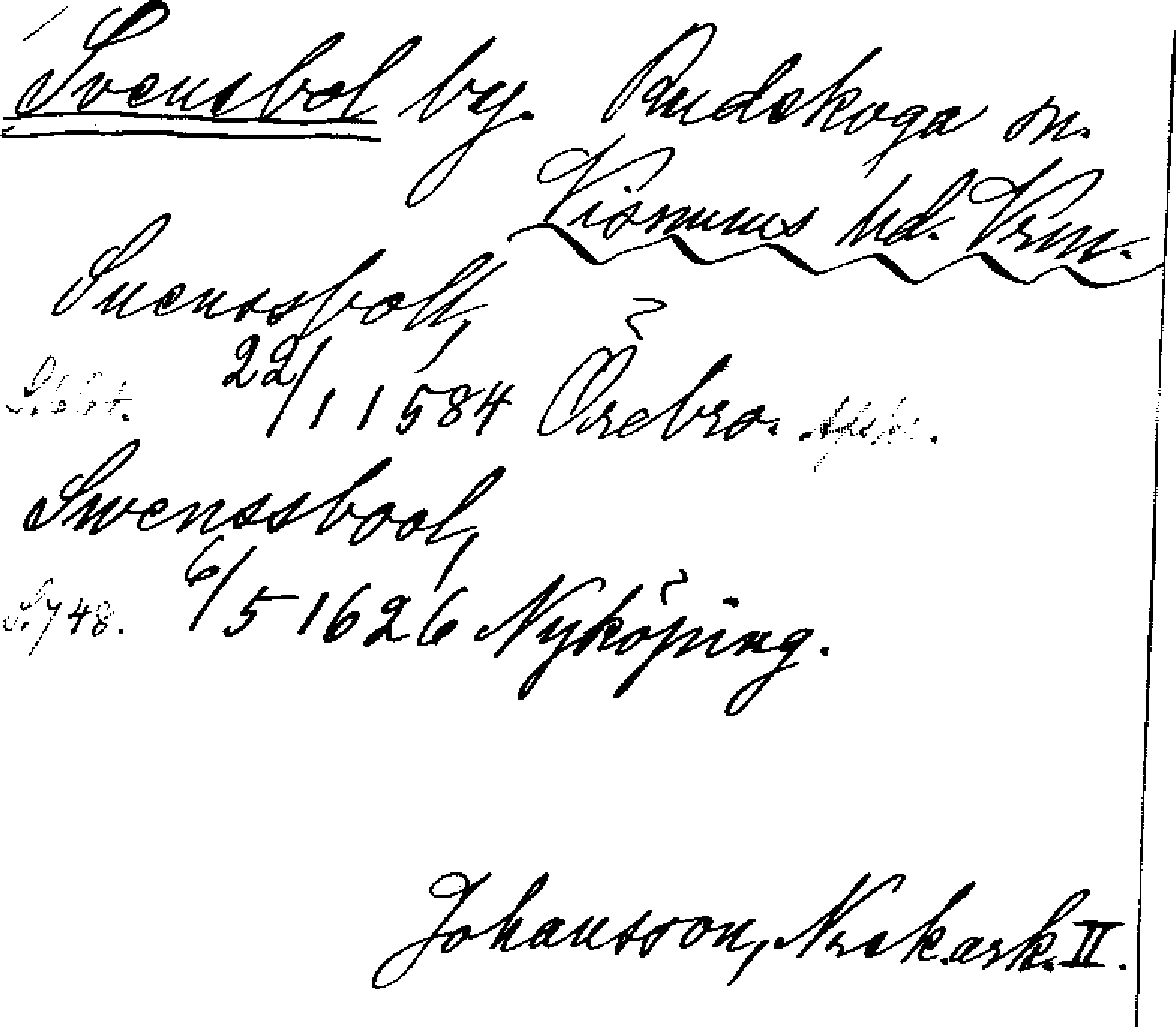 Svensbol by. Rudskoga sn.
Visnums hd. Vrm.
Suenssboll,
22/11 1584 Örebro.
Swenssbool,
S. 748. 6/5 1626 Nyköping.
Johansson, Nrsk.ark. II.